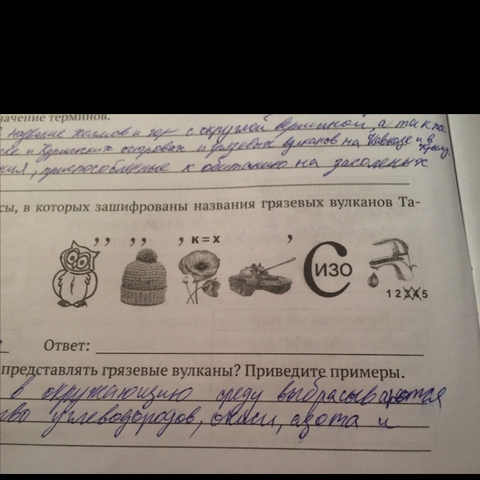 начение терминов.
название холмов и гор с округлой вершиной, а также
и Курильских островах и грязевых вулканов на Кавказе и в Крыму.
приспособленные к обитанию на засоленых
сы, в которых зашифрованы названия грязевых вулканов Та-
,, ,, , к=х , С изо 1 2 3 4 5
Ответ:
представлять грязевые вулканы? Приведите примеры.
в окружающию среду выбрасываются
тво углеводородов, окиси, азота и